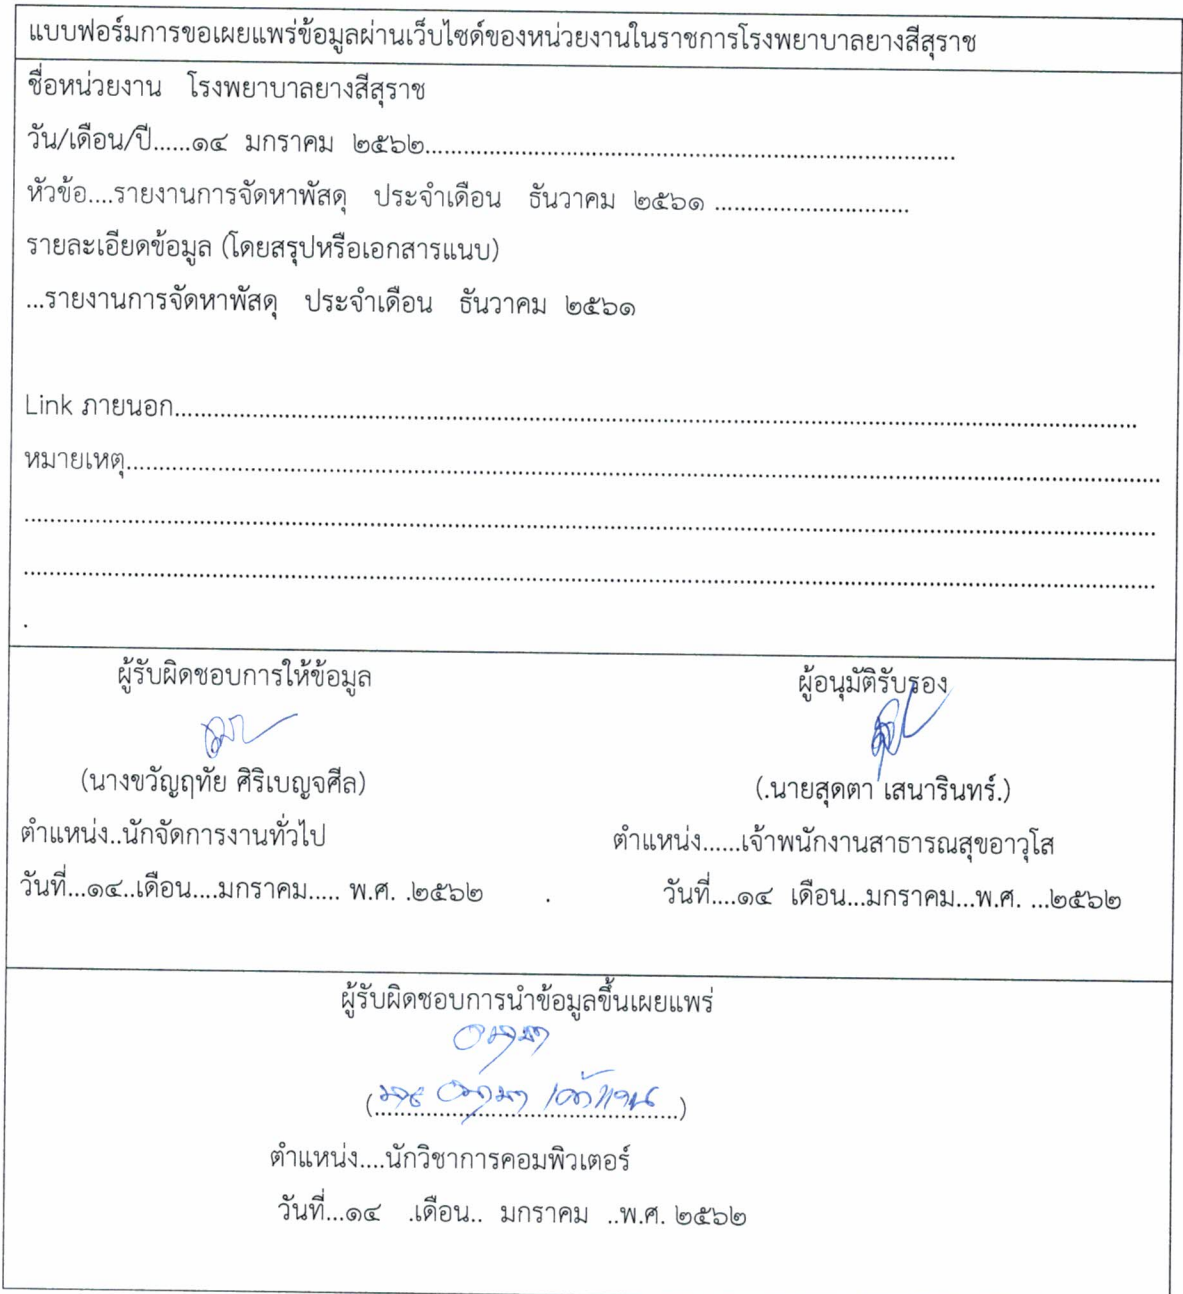 แบบฟอร์มการขอเผยแพร่ข้อมูลผ่านเว็บไซด์ของหน่วยงานในราชการโรงพยาบาลยางสีสุราช
ชื่อหน่วยงาน โรงพยาบาลยางสีสุราช
วัน/เดือน/ปี......๑๔ มกราคม ๒๕๖๒..................................................................................
หัวข้อ....รายงานการจัดหาพัสดุ ประจำเดือน ธันวาคม ๒๕๖๑ ..............................
รายละเอียดข้อมูล (โดยสรุปหรือเอกสารแนบ)
...รายงานการจัดหาพัสดุ ประจำเดือน ธันวาคม ๒๕๖๑
Link ภายนอก....................................................................................................
หมายเหตุ....................................................................................................
ผู้รับผิดชอบการให้ข้อมูล ผู้อนุมัติรับรอง
(นางขวัญฤทัย ศิริเบญจศีล) (.นายสุดตา เสนารินทร์.)
ตำแหน่ง..นักจัดการงานทั่วไป ตำแหน่ง......เจ้าพนักงานสาธารณสุขอาวุโส
วันที่...๑๔..เดือน....มกราคม..... พ.ศ. .๒๕๖๒ . วันที่....๑๔ เดือน...มกราคม...พ.ศ. ...๒๕๖๒
ผู้รับผิดชอบการนำข้อมูลขึ้นเผยแพร่
ตำแหน่ง....นักวิชาการคอมพิวเตอร์
วันที่...๑๔ .เดือน.. มกราคม ..พ.ศ. ๒๕๖๒